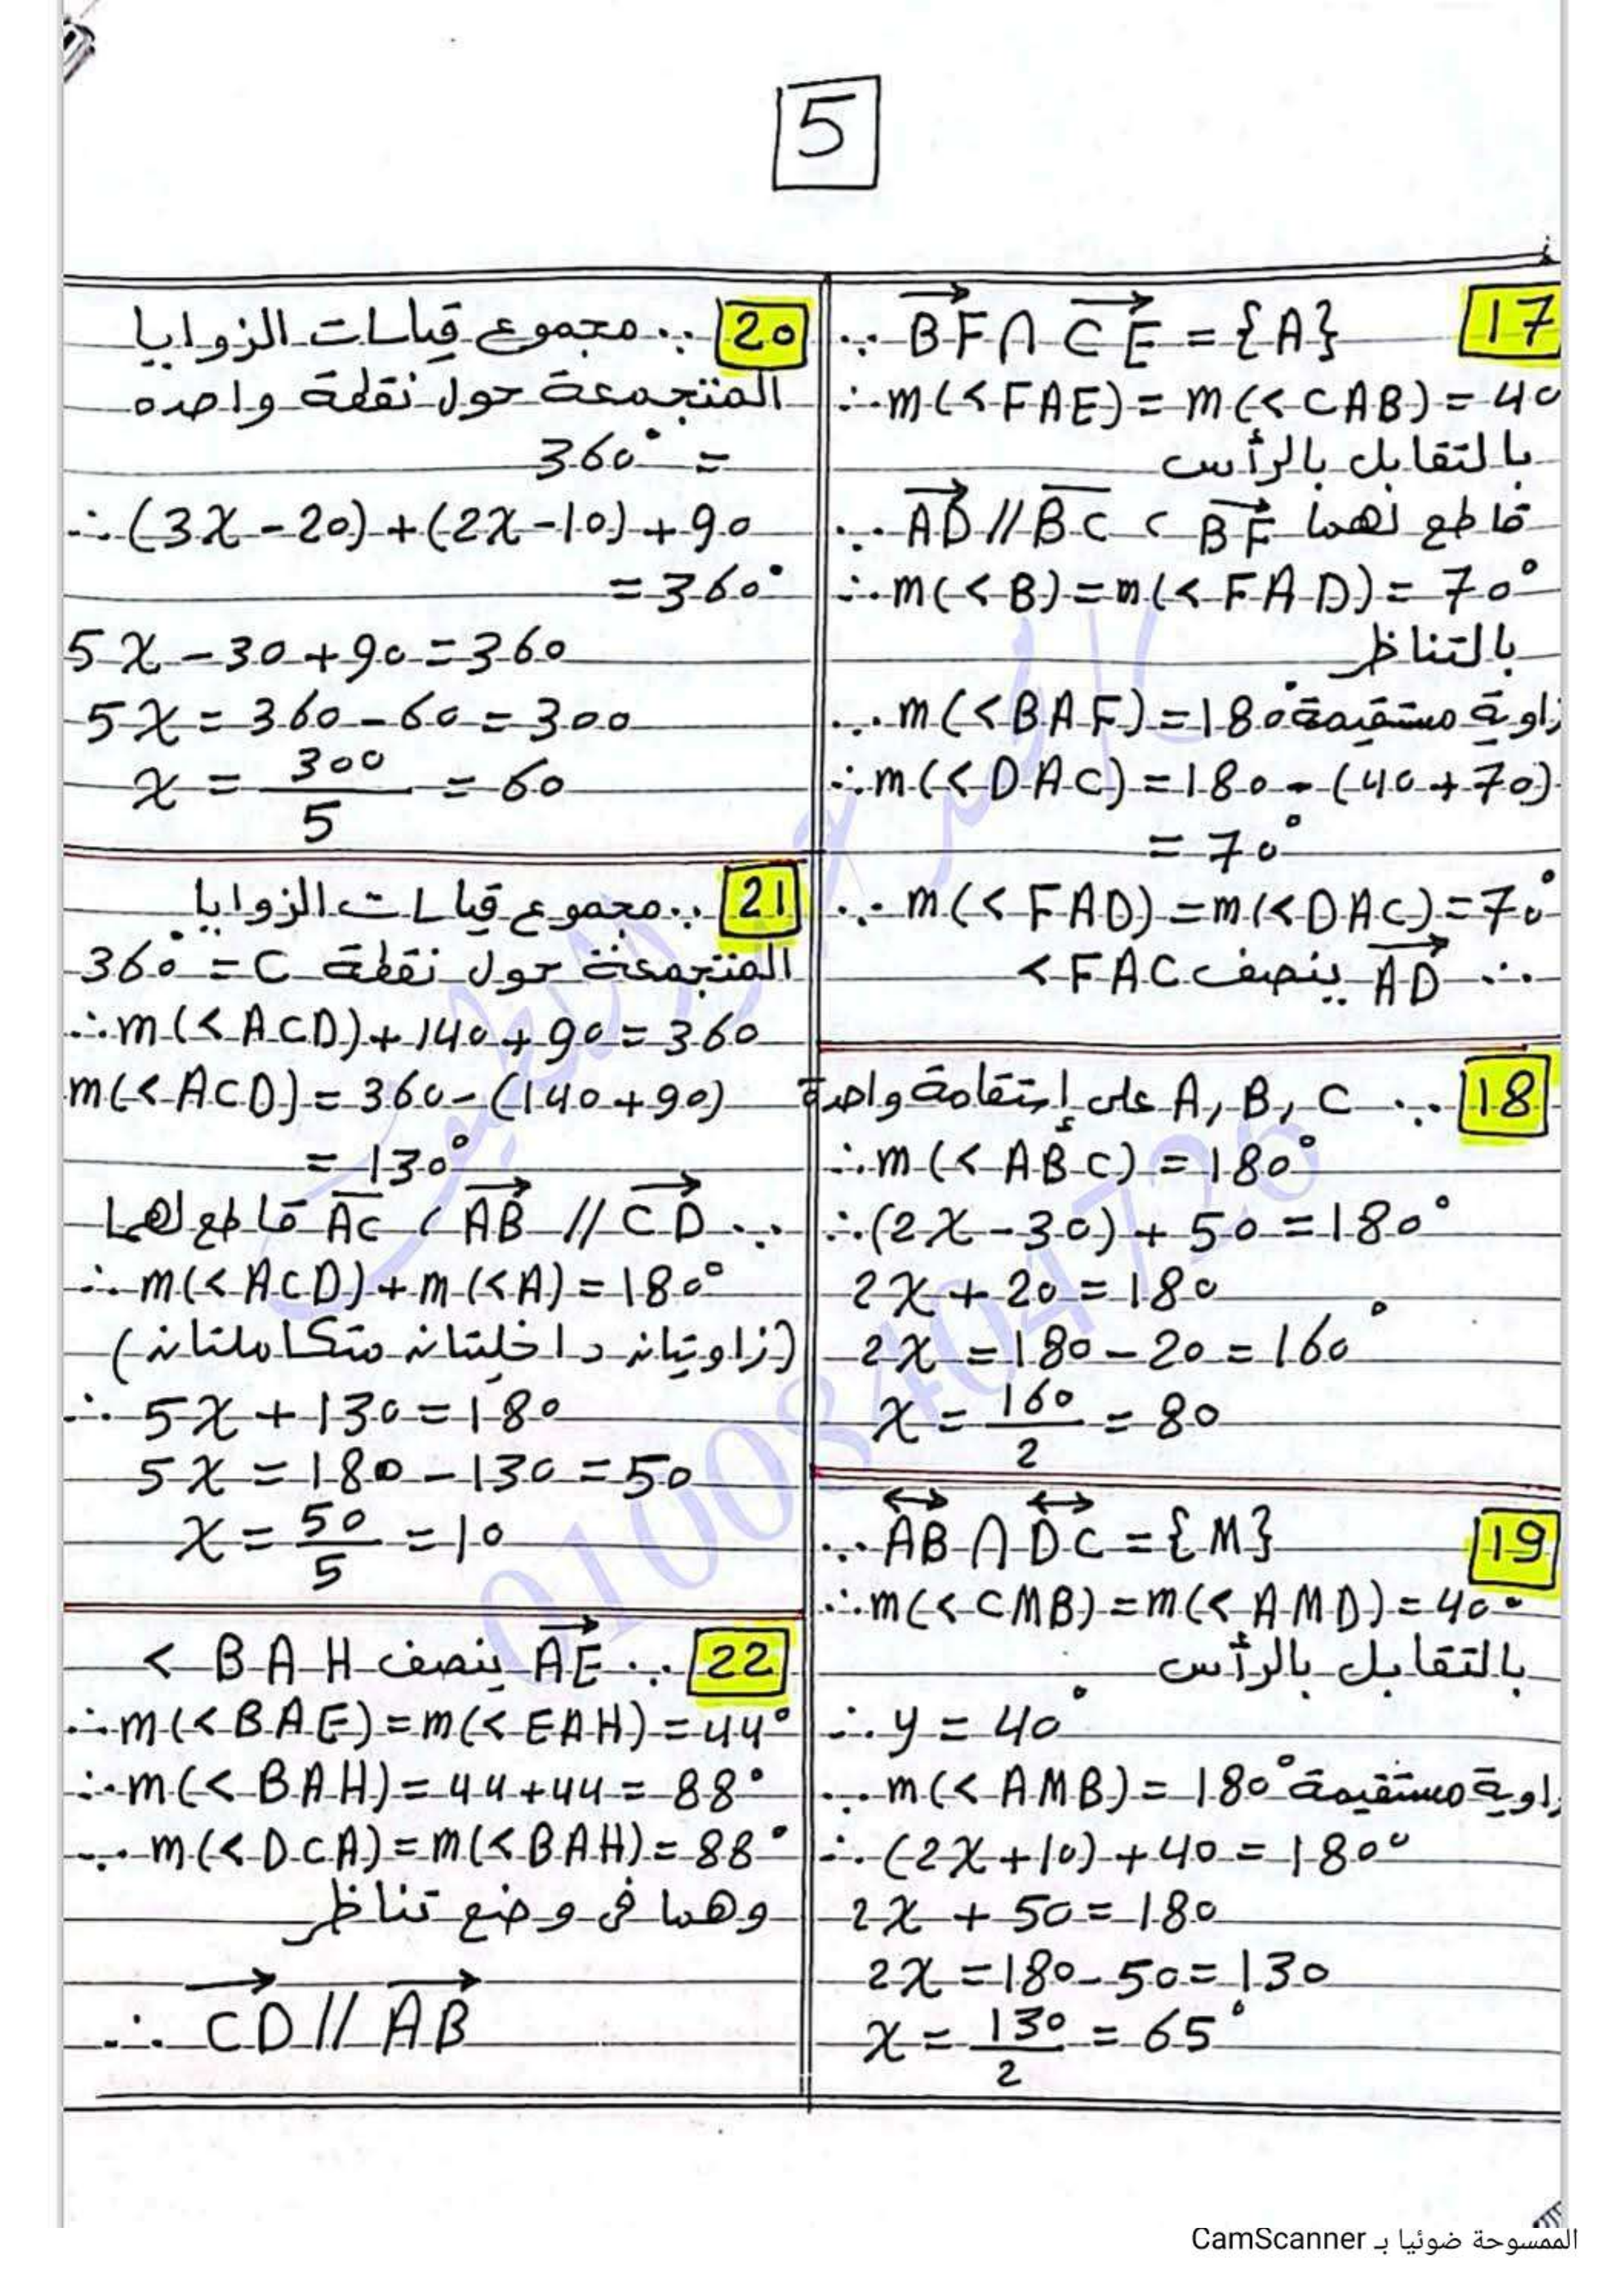 5
17
∵ BF ∩ CE = {A}
∴ m(<FAE) = m(<CAB) = 40
بالتقابل بالرأس
∵ AD // BC ، BF قاطع لهما
∴ m(<B) = m(<FAD) = 70°
بالتناظر
∵ m(<BAF) = 180° زاوية مستقيمة
∴ m(<DAC) = 180 - (40+70)
= 70°
∵ m(<FAD) = m(<DAC) = 70°
∴ AD ينصف <FAC
18
∵ A, B, C على إستقامة واحدة
∴ m(<ABC) = 180°
∴ (2x - 30) + 50 = 180°
2x + 20 = 180
2x = 180 - 20 = 160°
x = 160/2 = 80
19
∵ AB ∩ DC = {M}
∴ m(<CMB) = m(<AMD) = 40°
بالتقابل بالرأس
∴ y = 40°
∵ m(<AMB) = 180° زاوية مستقيمة
∴ (2x+10) + 40 = 180°
2x + 50 = 180
2x = 180 - 50 = 130
x = 130/2 = 65°
20
∵ مجموع قياسات الزوايا
المتجمعة حول نقطة واحده
= 360°
∴ (3x - 20) + (2x - 10) + 90
= 360°
5x - 30 + 90 = 360
5x = 360 - 60 = 300
x = 300/5 = 60
21
∵ مجموع قياسات الزوايا
المتجمعة حول نقطة C = 360°
∴ m(<ACD) + 140 + 90 = 360
m(<ACD) = 360 - (140+90)
= 130°
∵ CD // AB ، AC قاطع لهما
∴ m(<ACD) + m(<A) = 180°
(زاويتان داخليتان متكاملتان)
∴ 5x + 130 = 180
5x = 180 - 130 = 50
x = 50/5 = 10
22
∵ AE ينصف < BAH
∴ m(<BAE) = m(<EAH) = 44°
∴ m(<BAH) = 44+44 = 88°
∵ m(<DCA) = m(<BAH) = 88°
وهما فى وضع تناظر
∴ CD // AB
الممسوحة ضوئيا بـ CamScanner